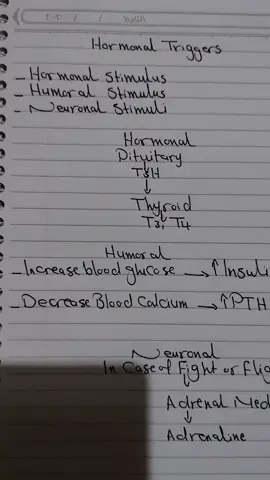 Hormonal Triggers
- Hormonal Stimulus
- Humoral Stimulus
- Neuronal Stimuli
Hormonal
Pituitary
TSH
↓
Thyroid
↓
T3, T4
Humoral
- Increase blood glucose → ↑ Insuli
- Decrease Blood Calcium → ↑ PTH
Neuronal
In Case of Fight or Flig
↓
Adrenal Med
↓
Adrenaline